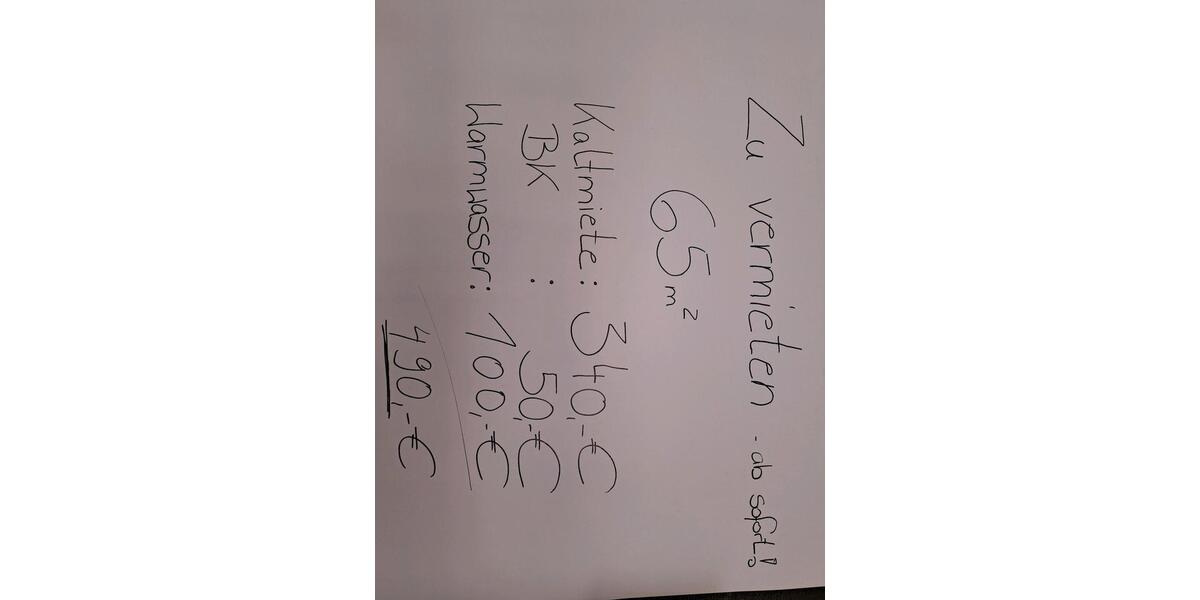 Zu vermieten - ab sofort!
65 m²
Kaltmiete: 340,-€
BK : 50,-€
Warmwasser: 100,-€
490,-€